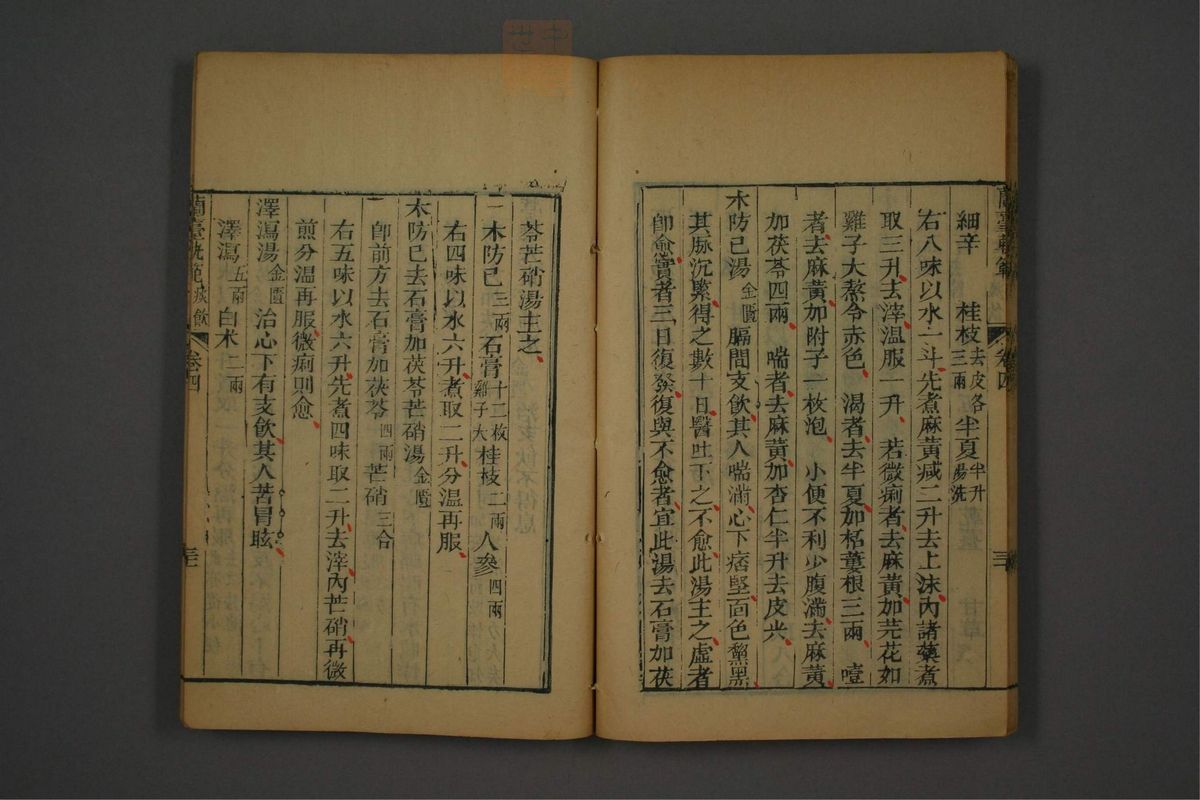 細辛　桂枝去皮各三兩　半夏半升湯洗
右八味以水一斗先煮麻黃減二升去上沫內諸藥煮
取三升去滓溫服一升　若微痢者去麻黃加芫花如
雞子大熬令赤色　渴者去半夏加栝蔞根三兩　噎
者去麻黃加附子一枚泡　小便不利少腹滿去麻黃
加茯苓四兩　喘者去麻黃加杏仁半升去皮尖
木防已湯金匱　膈間支飲其人喘滿心下痞堅面色黧黑
其脉沉緊得之數十日醫吐下之不愈此湯主之虛者
卽愈實者三日復發復與不愈者宜此湯去石膏加茯
苓芒硝湯主之
木防已三兩　石膏十二枚雞子大　桂枝二兩　人參四兩
右四味以水六升煮取二升分溫再服
木防已去石膏加茯苓芒硝湯金匱
卽前方去石膏加茯苓四兩　芒硝三合
右五味以水六升先煮四味取二升去滓內芒硝再微
煎分溫再服微痢則愈
澤瀉湯金匱　治心下有支飲其人苦冒眩
澤瀉五兩　白术二兩
蘭臺軌範　痰飲　卷四